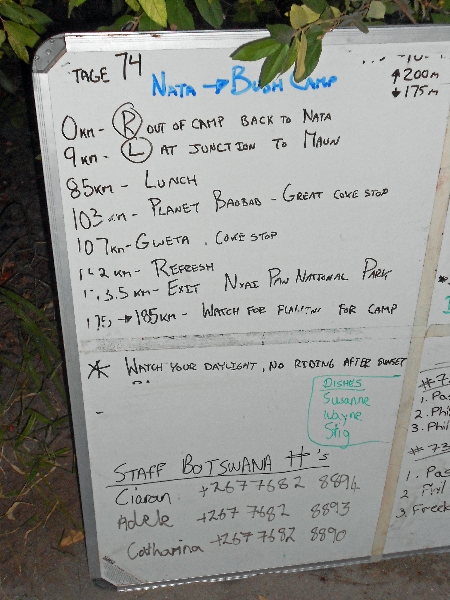 TAGE 74
NATA → BUSH CAMP
↑200m
↓175m
0KM - (R) OUT OF CAMP BACK TO NATA
9KM - (L) AT JUNCTION TO MAUN
85KM - LUNCH
103KM - PLANET BAOBAB - GREAT COKE STOP
107KM - GWETA . COKE STOP
KM - REFRESH
3.5KM - EXIT NXAI PAN NATIONAL PARK
175 → 185KM - WATCH FOR FOR CAMP
* WATCH YOUR DAYLIGHT, NO RIDING AFTER SUNSET
DISHES
Susanne
Wayne
Stig
STAFF BOTSWANA #'s
Ciaran +267 7682 8894
Adele +267 7682 8893
Catharina +267 7682 8890
1. Pas
2. Phi
3. Phil
# 73
1. Pas
2 Phil
3. Freek